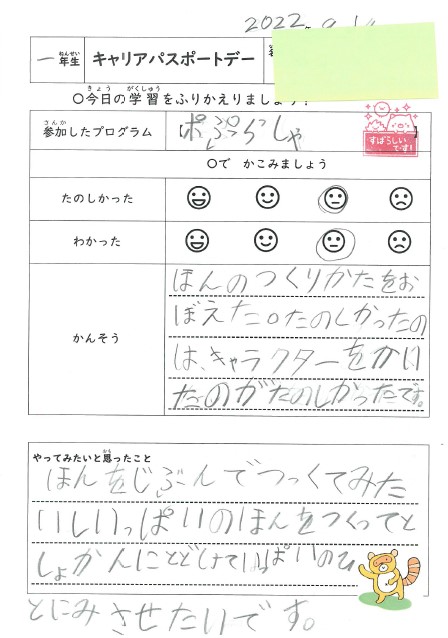 2022年
一年生 キャリアパスポートデー
ねんせい
きょう がくしゅう
○今日の学習をふりかえりましょう！
さんか
参加したプログラム
ぽぷらしゃ
すばらしいです！
○で かこみましょう
たのしかった
わかった
かんそう
ほんのつくりかたをお
ぼえた。たのしかったの
は、キャラクターをかい
たのがたのしかったです。
おも
やってみたいと思ったこと
ほんをじぶんでつっくてみた
いしいっぱいのほんをつくってと
しょかんにとどけていっぱいのひ
とにみさせたいです。